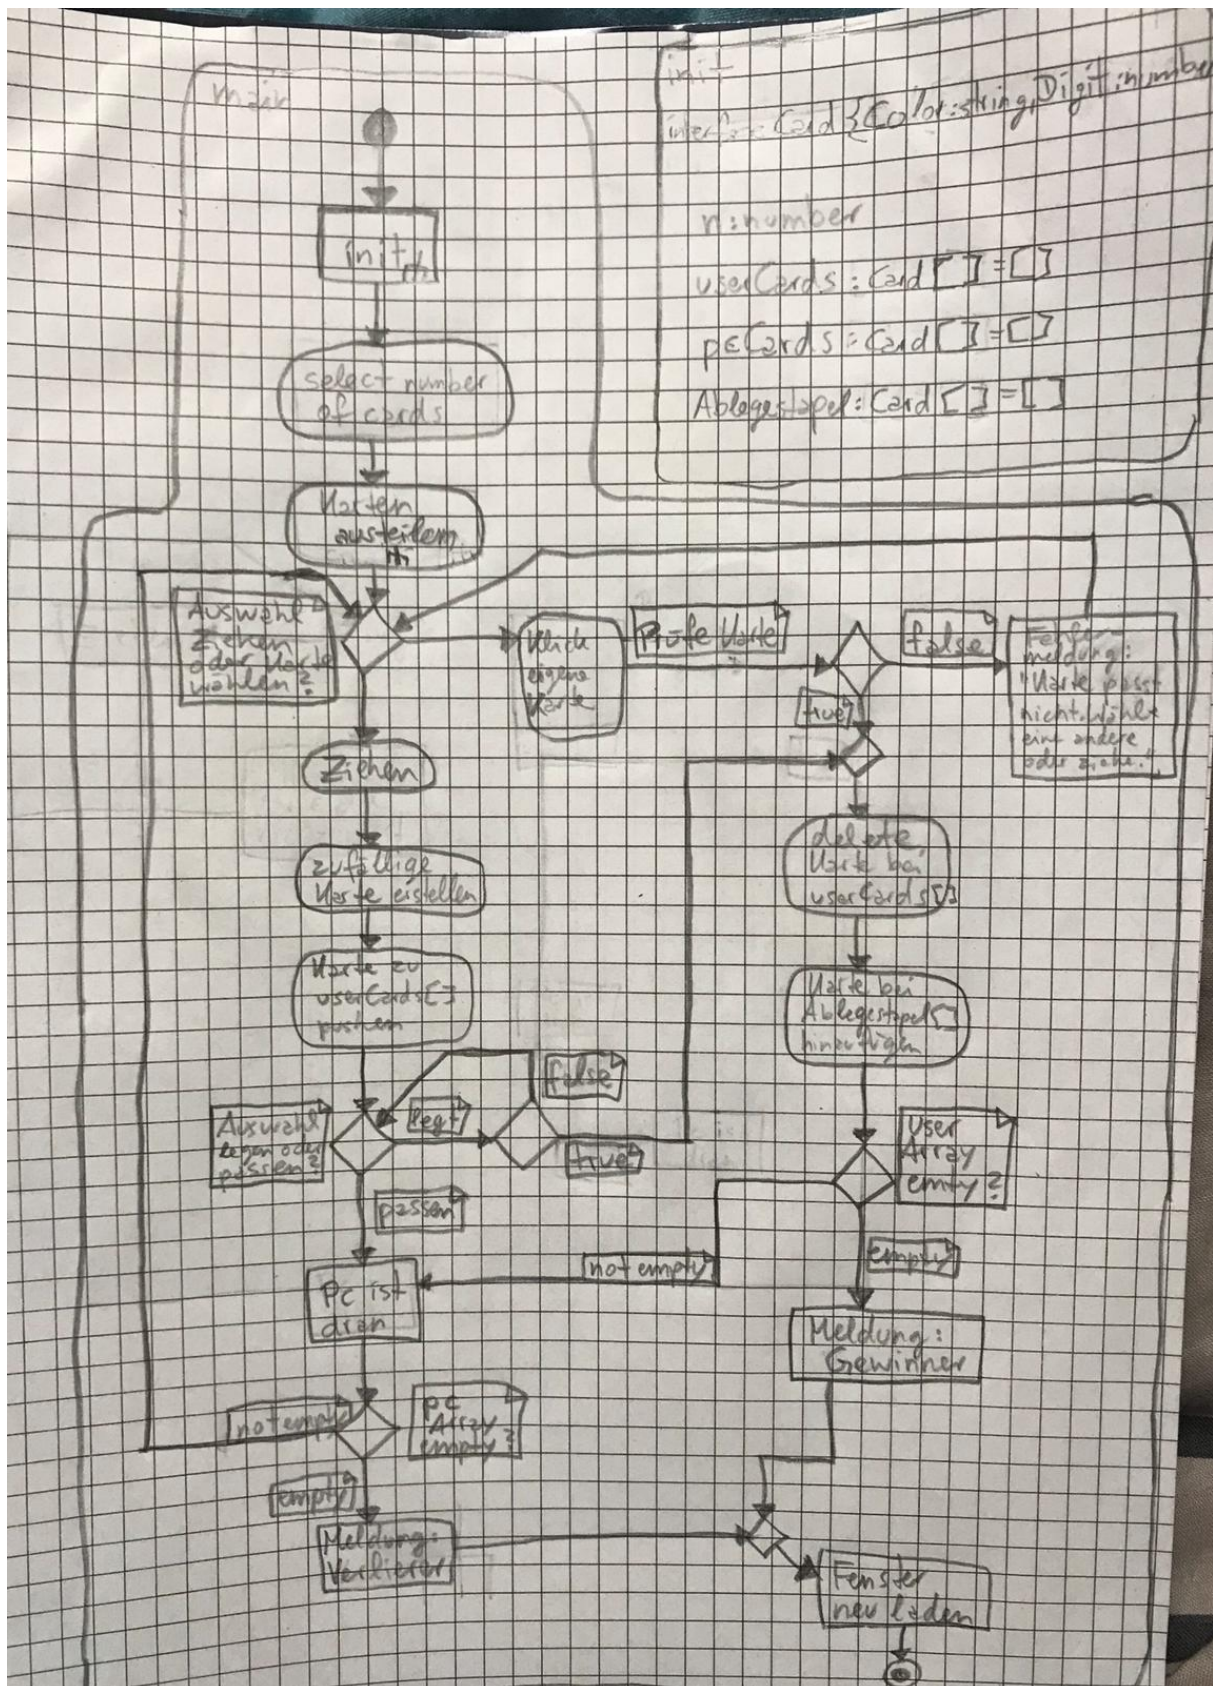 main
init
interface Card {Color:string, Digit:number
n:number
userCards : Card [] = []
pcCards : Card [] = []
Ablegestapel : Card [] = []
init
select number
of cards
Karten
austeilen
Auswahl
Ziehen
oder Karte
wählen?
Klick
eigene
Karte
Prüfe Karte
false
Fehler-
meldung:
"Karte passt
nicht. wähle
eine andere
oder ziehe."
true
Ziehen
zufällige
Karte erstellen
delete
Karte bei
userCards[]
Karte zu
userCards[]
pushen
Karte bei
Ablegestapel[]
hinzufügen
false
Auswahl
legen oder
passen?
legt
true
User
Array
empty?
passen
not empty
empty
Pc ist
dran
Meldung:
Gewinner
not empty
pc
Array
empty?
empty
Meldung:
Verlierer
Fenster
neu laden